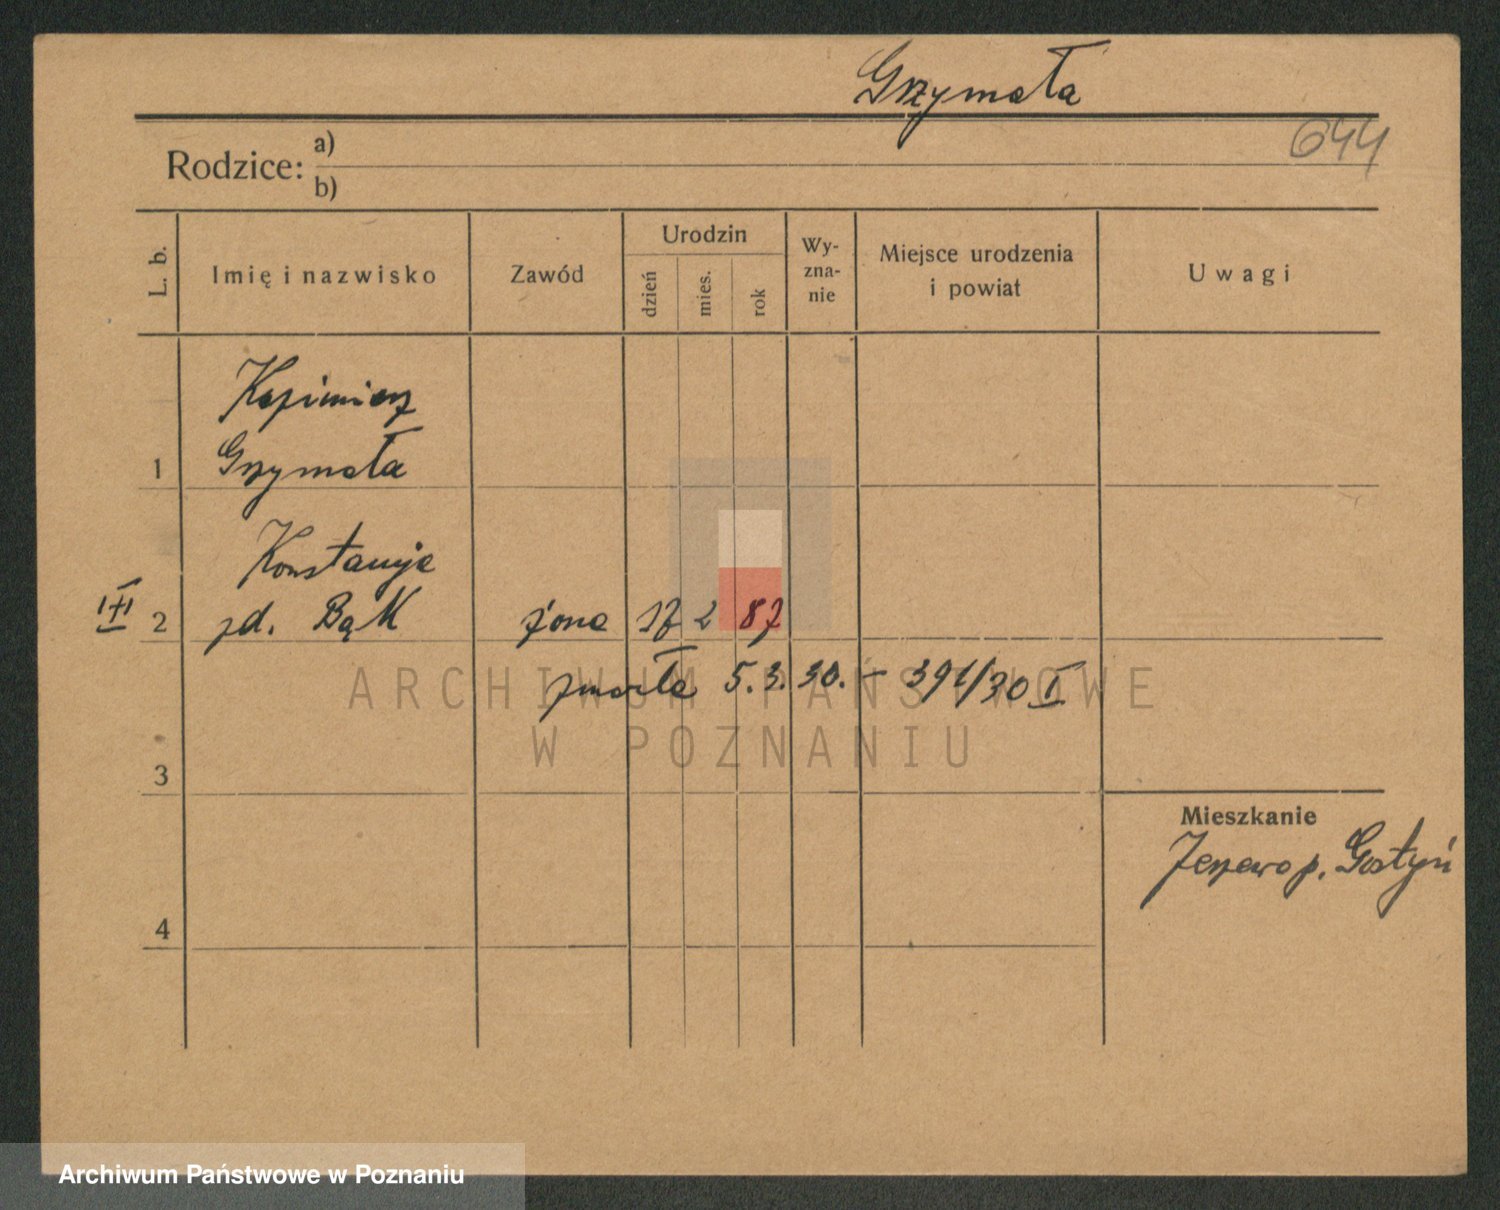 Grzymała
644
Rodzice: a)
b)
L. b.
Imię i nazwisko
Zawód
Urodzin
dzień
mies.
rok
Wy-
zna-
nie
Miejsce urodzenia
i powiat
Uwagi
Kazimierz
1 Grzymała
Konstancja
2 zd. Bąk żona 17 2 87
zmarła 5. 3. 30. - 391/30 I
ARCHIWUM PAŃSTWOWE
W POZNANIU
3
Mieszkanie
p. Gostyń
4
Archiwum Państwowe w Poznaniu